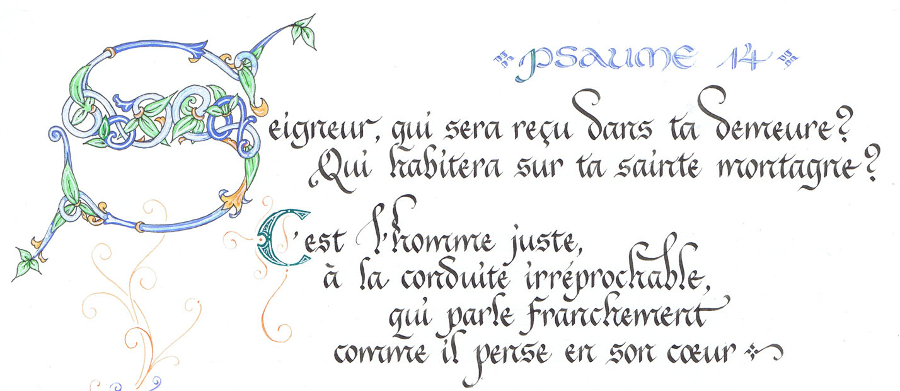 Psaume 14
Seigneur, qui sera reçu dans ta demeure?
Qui habitera sur ta sainte montagne?
C'est l'homme juste,
à la conduite irréprochable,
qui parle franchement
comme il pense en son cœur